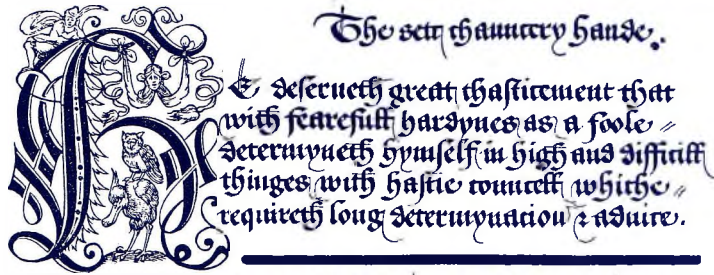 The sett chauncery hande.
HE deserueth great chasticement that
with fearefull hardynes as a foole
determyneth hymself in high and difficill
thinges with hastie councell whiche
requireth long determynacion & aduice.